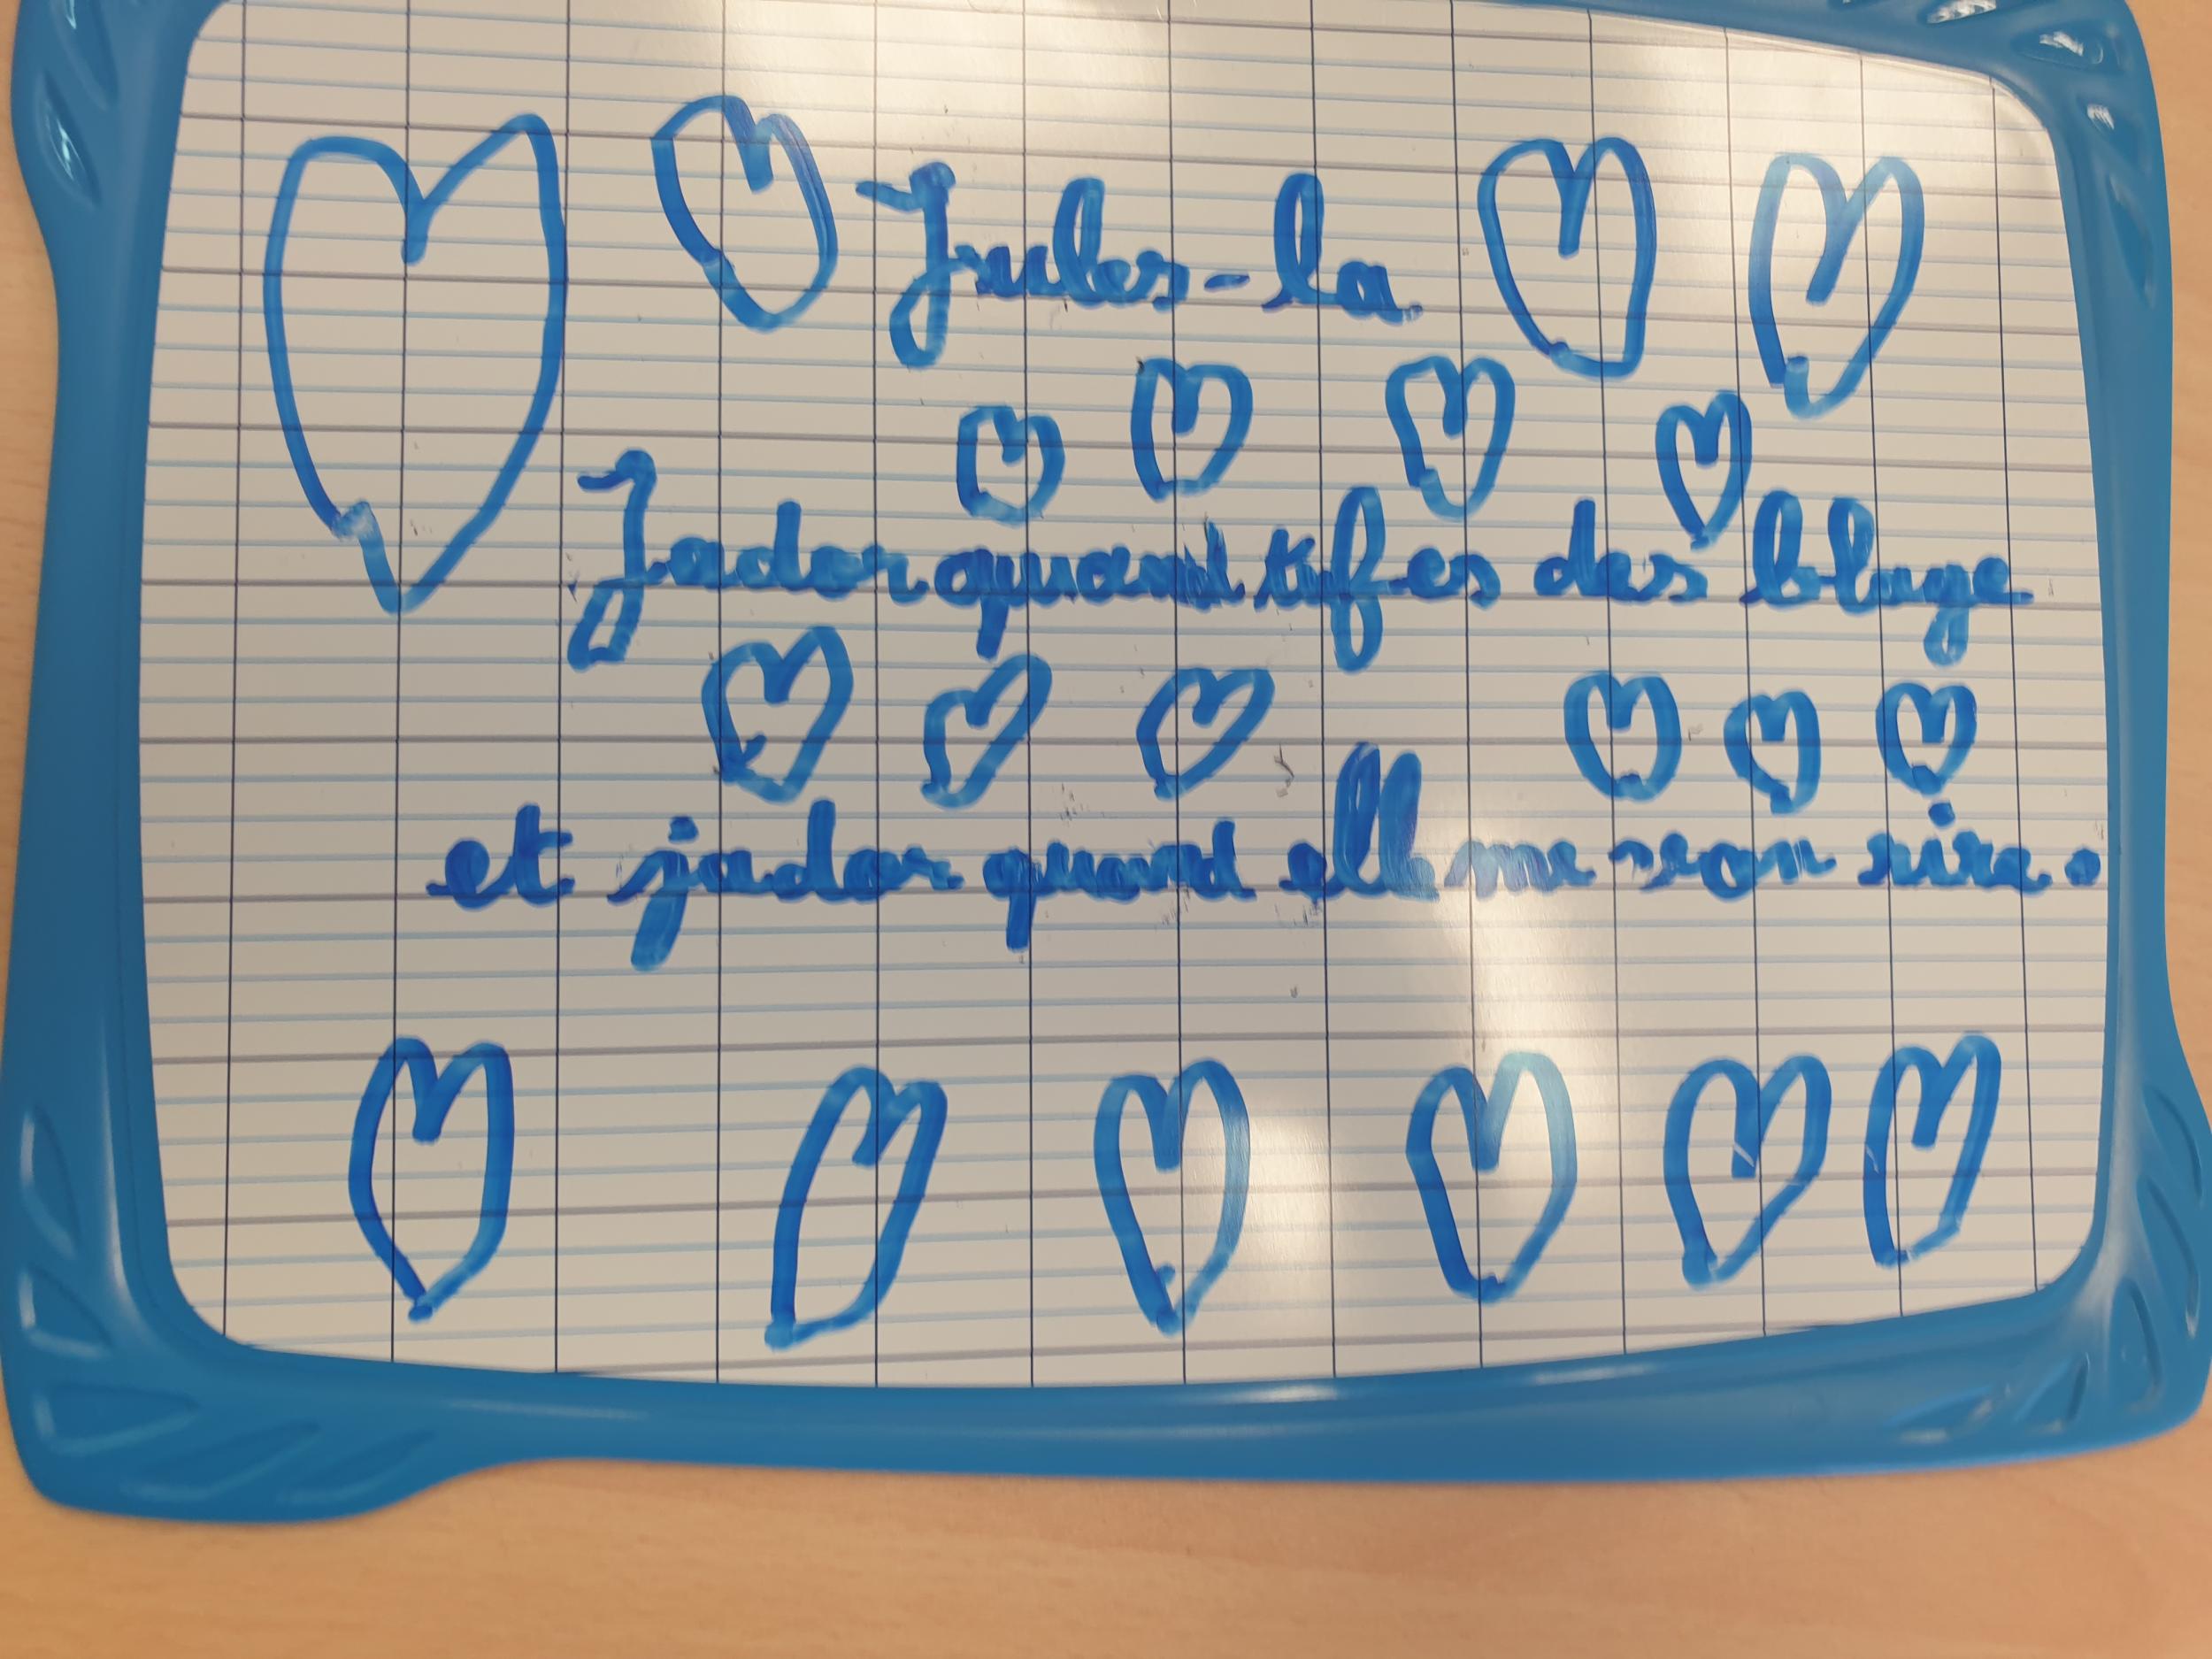 Jules-la
Jador quand tu fes des bluge
et jador quand elle me son rire.